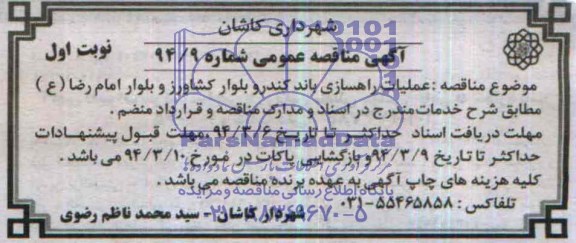 شهرداری کاشان
آگهی مناقصه عمومی شماره ۹۴/۹
نوبت اول
موضوع مناقصه : عملیات راهسازی باند کندرو بلوار کشاورز و بلوار امام رضا ( ع )
مطابق شرح خدمات مندرج در اسناد و مدارک مناقصه و قرارداد منضم .
مهلت دریافت اسناد حداکثر تا تاریخ ۹۴/۳/۶ . مهلت قبول پیشنهادات
حداکثر تا تاریخ ۹۴/۳/۹ و بازگشایی پاکات در مورخ ۹۴/۳/۱۰ می باشد .
کلیه هزینه های چاپ آگهی به عهده برنده مناقصه می باشد .
تلفاکس : ۵۵۴۶۵۸۵۸-۰۳۱
شهردار کاشان - سید محمد ناظم رضوی
ParsNamadData
پایگاه اطلاع رسانی مناقصه و مزایده